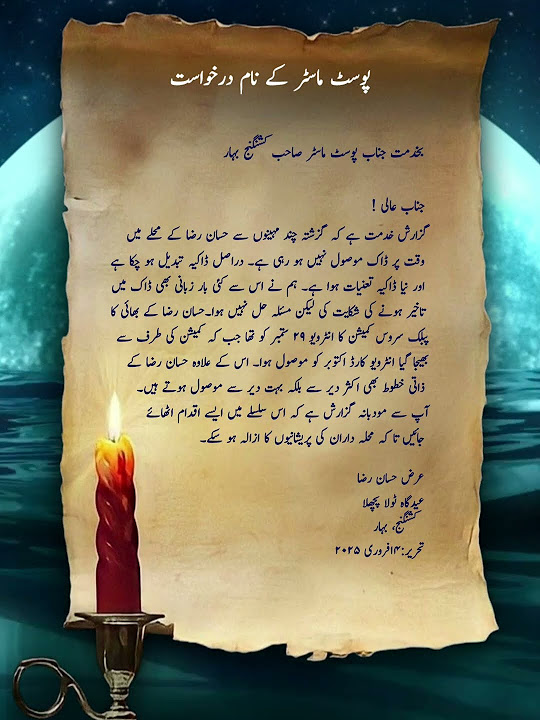 پوسٹ ماسٹر کے نام درخواست
بخدمت جناب پوسٹ ماسٹر صاحب کشنگنج بہار
جناب عالی !
گزارش خدمت ہے کہ گزشتہ چند مہینوں سے حسان رضا کے محلے میں
وقت پر ڈاک موصول نہیں ہو رہی ہے۔ دراصل ڈاکیہ تبدیل ہو چکا ہے
اور نیا ڈاکیہ تعنیات ہوا ہے۔ ہم نے اس سے کئی بار زبانی بھی ڈاک میں
تاخیر ہونے کی شکایت کی لیکن مسئلہ حل نہیں ہوا۔حسان رضا کے بھائی کا
پبلک سروس کمیشن کا انٹرویو ۲۹ ستمبر کو تھا جب کہ کمیشن کی طرف سے
بھیجا گیا انٹرویو کارڈ اکتوبر کو موصول ہوا۔ اس کے علاوہ حسان رضا کے
ذاتی خطوط بھی اکثر دیر سے بلکہ بہت دیر سے موصول ہوتے ہیں۔
آپ سے مودبانہ گزارش ہے کہ اس سلسلے میں ایسے اقدام اٹھائے
جائیں تا کہ محلہ داران کی پریشانیوں کا ازالہ ہو سکے۔
عرض حسان رضا
عیدگاہ ٹولا پچھلا
کشنگنج، بہار
تحریر:۱۴فروری ۲۰۲۵